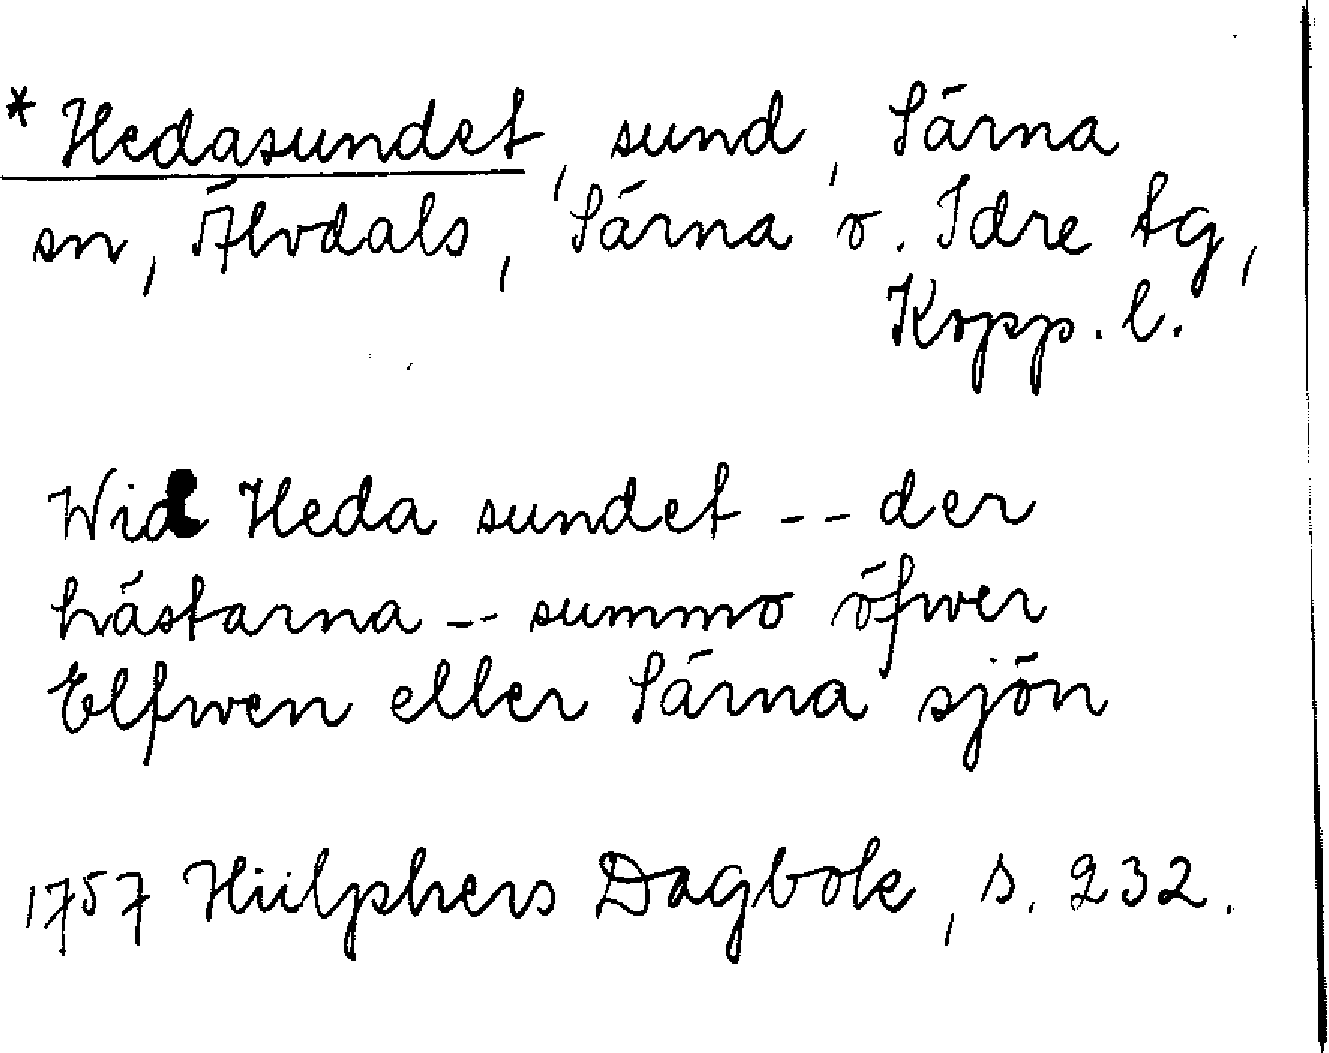 * Hedasundet, sund, Särna
sn, Älvdals, Särna o. Idre tg,
Kopp. l.
Wid Heda sundet -- der
hästarna -- summo öfwer
Elfwen eller Särna sjön
1757 Hülphers Dagbok, s. 232.